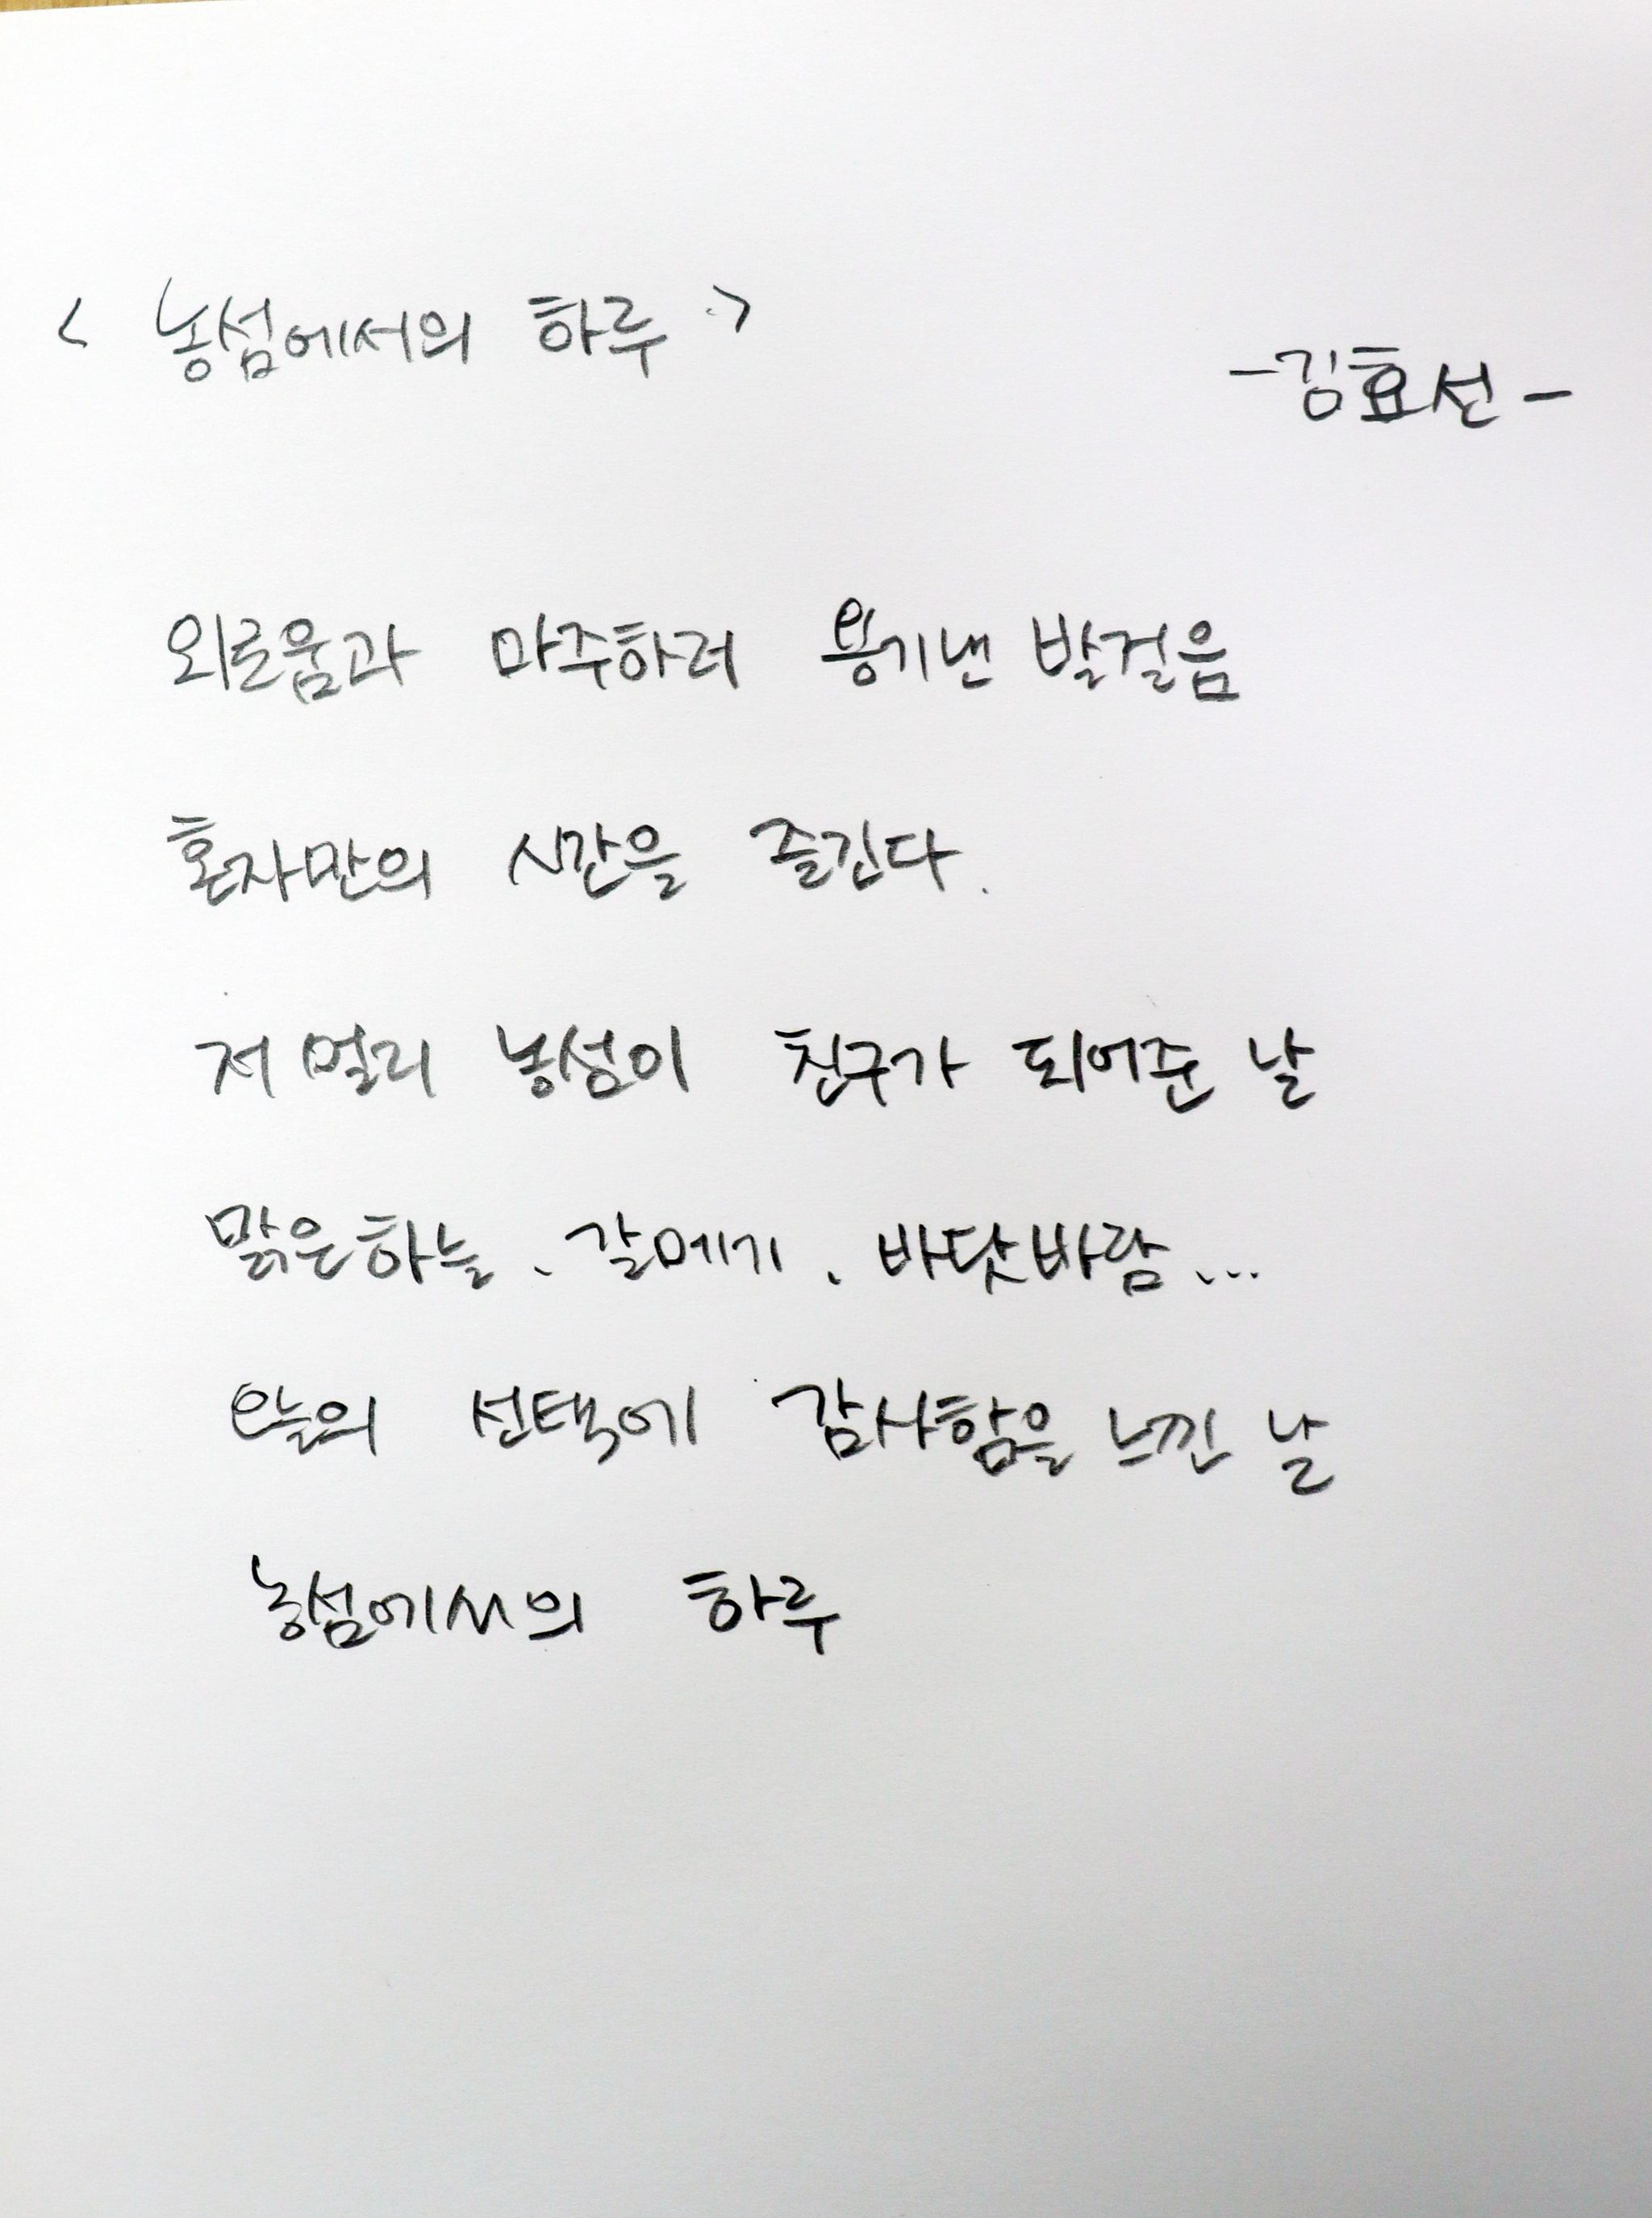 < 농섬에서의 하루 >
-김효선-
외로움과 마주하러 용기낸 발걸음
혼자만의 시간을 즐긴다.
저 멀리 농섬이 친구가 되어준 날
맑은하늘、갈메기、바닷바람...
오늘의 선택에 감사함을 느낀 날
농섬에서의 하루